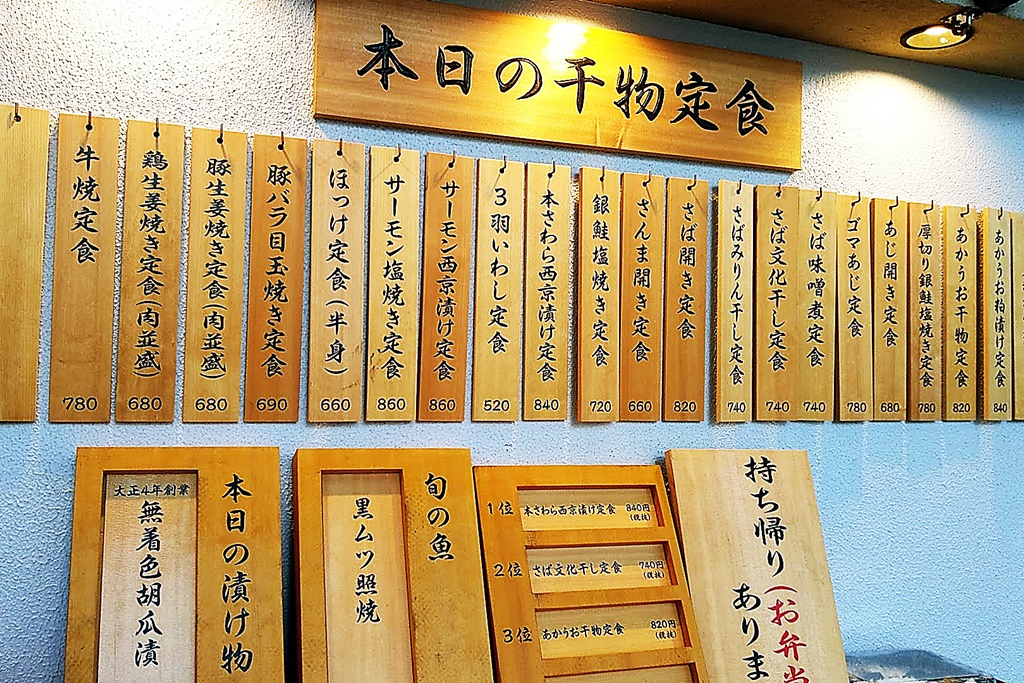 本日の干物定食
牛焼定食
780
鶏生姜焼き定食(肉並盛)
680
豚生姜焼き定食(肉並盛)
680
豚バラ目玉焼き定食
690
ほっけ定食(半身)
660
サーモン塩焼き定食
860
サーモン西京漬け定食
860
3羽いわし定食
520
本さわら西京漬け定食
840
銀鮭塩焼き定食
720
さんま開き定食
660
さば開き定食
820
さばみりん干し定食
740
さば文化干し定食
740
さば味噌煮定食
740
ゴマあじ定食
780
あじ開き定食
680
厚切り銀鮭塩焼き定食
780
あかうお干物定食
820
あかうお粕漬け定食
840
本日の漬け物
大正4年創業
無着色胡瓜漬
旬の魚
黒ムツ照焼
1位 本さわら西京漬け定食 840円
(税抜)
2位 さば文化干し定食 740円
(税抜)
3位 あかうお干物定食 820円
(税抜)
持ち帰り(お弁当
ありま